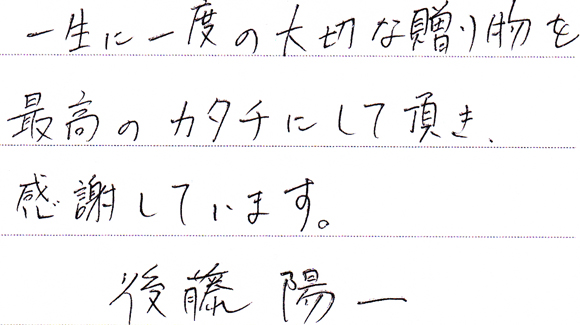 一生に一度の大切な贈り物を
最高のカタチにして頂き、
感謝しています。
後藤 陽一